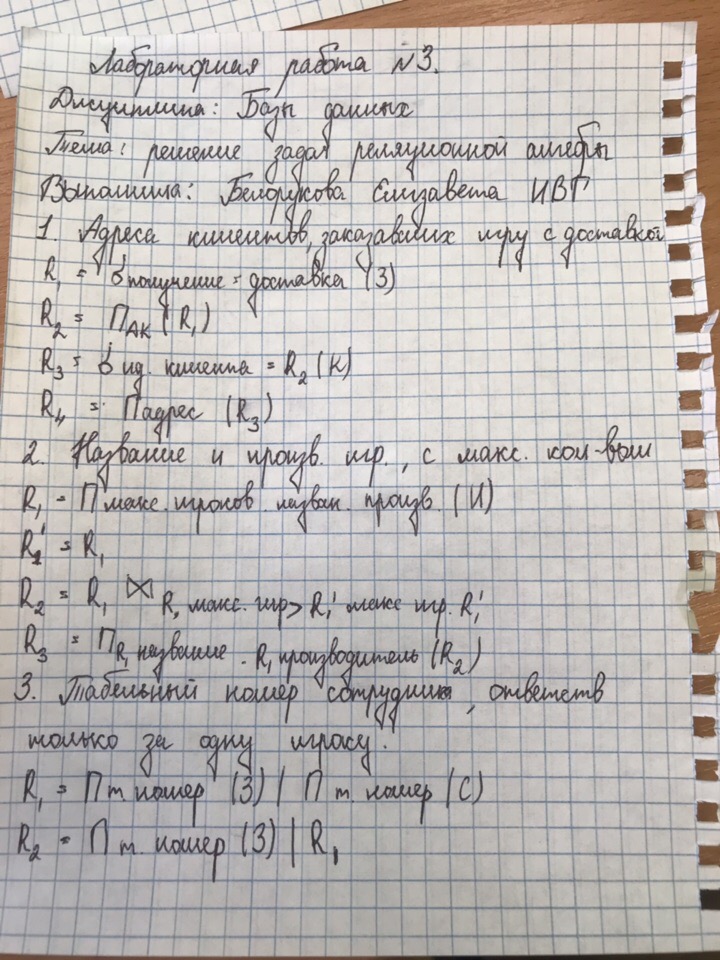 Лабораторная работа №3.
Дисциплина: Базы данных
Тема: решение задач реляционной алгебры
Выполнила: Белорукова Елизавета ИВТ
1. Адреса клиентов, заказавших игру с доставкой
R₁ = σ получение = доставка (З)
R₂ = П АК (R₁)
R₃ = σ ид. клиента = R₂ (К)
R₄ = П адрес (R₃)
2. Название и произв. игр., с макс. кол-вом
R₁ = П макс. игроков. назван. произв. (И)
R₁' = R₁
R₂ = R₁ ⋈ R₁ макс. игр > R₁' макс игр. R₁'
R₃ = П R₁ название. R₁ производитель (R₂)
3. Табельный номер сотрудника, ответств
только за одну игроку.
R₁ = П т. номер (З) / П т. номер (С)
R₂ = П т. номер (З) / R₁